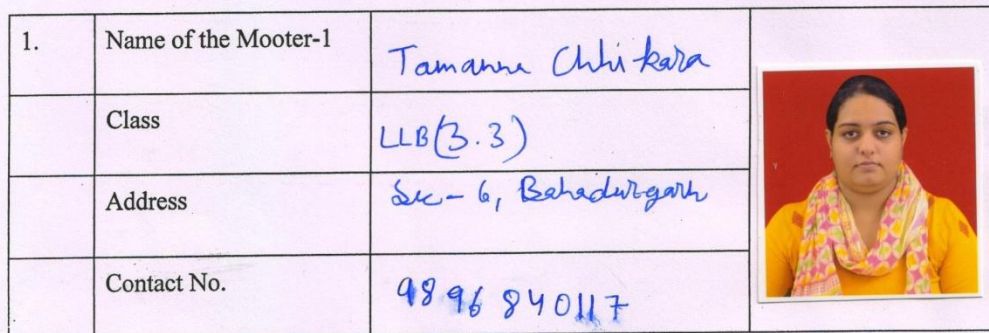 1. Name of the Mooter-1 Tamanna Chhikara
Class LLB(3.3)
Address Sec-6, Bahadurgarh
Contact No. 9896840117